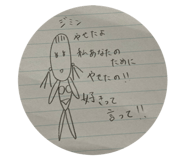 ジミン
やせたよ
私あなたの
ために
やせたの!!
好きって
言って!!